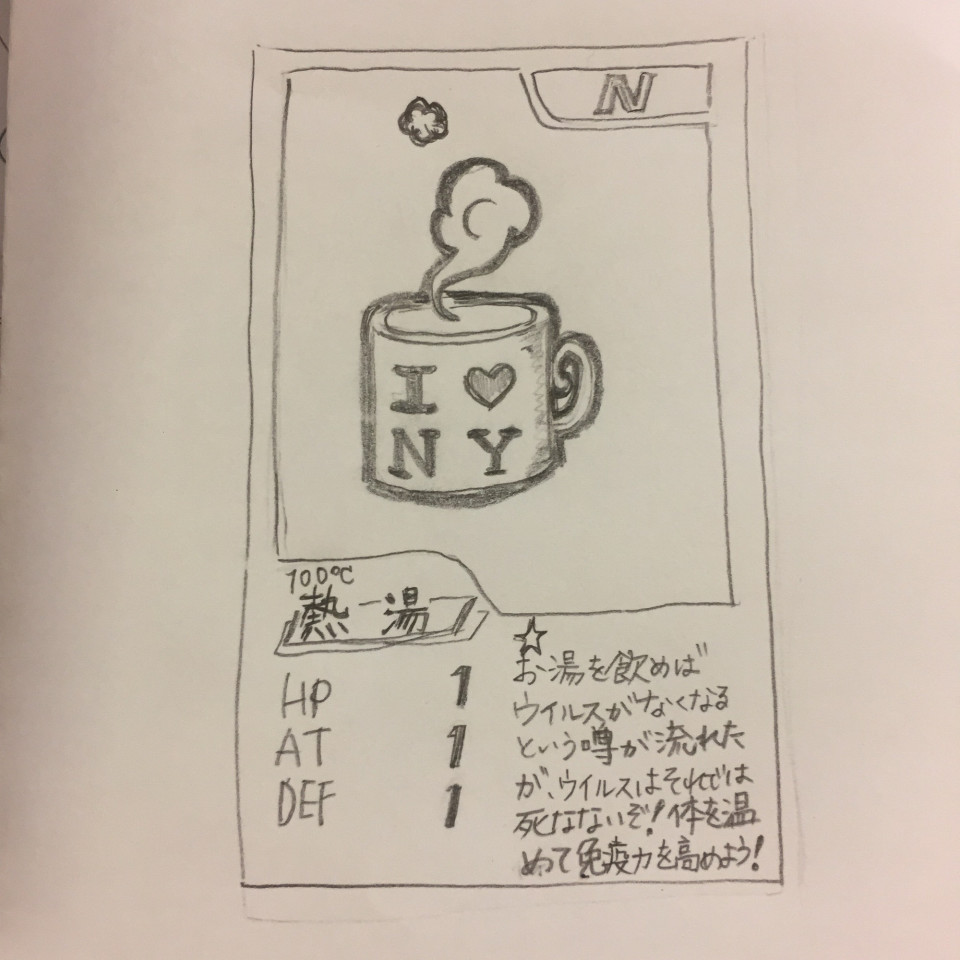 N
I ♥
N Y
100℃
熱湯
HP 1
AT 1
DEF 1
☆
お湯を飲めば
ウイルスがなくなる
という噂が流れた
が、ウイルスはそれでは
死なないぞ！体を温
めて免疫力を高めよう！